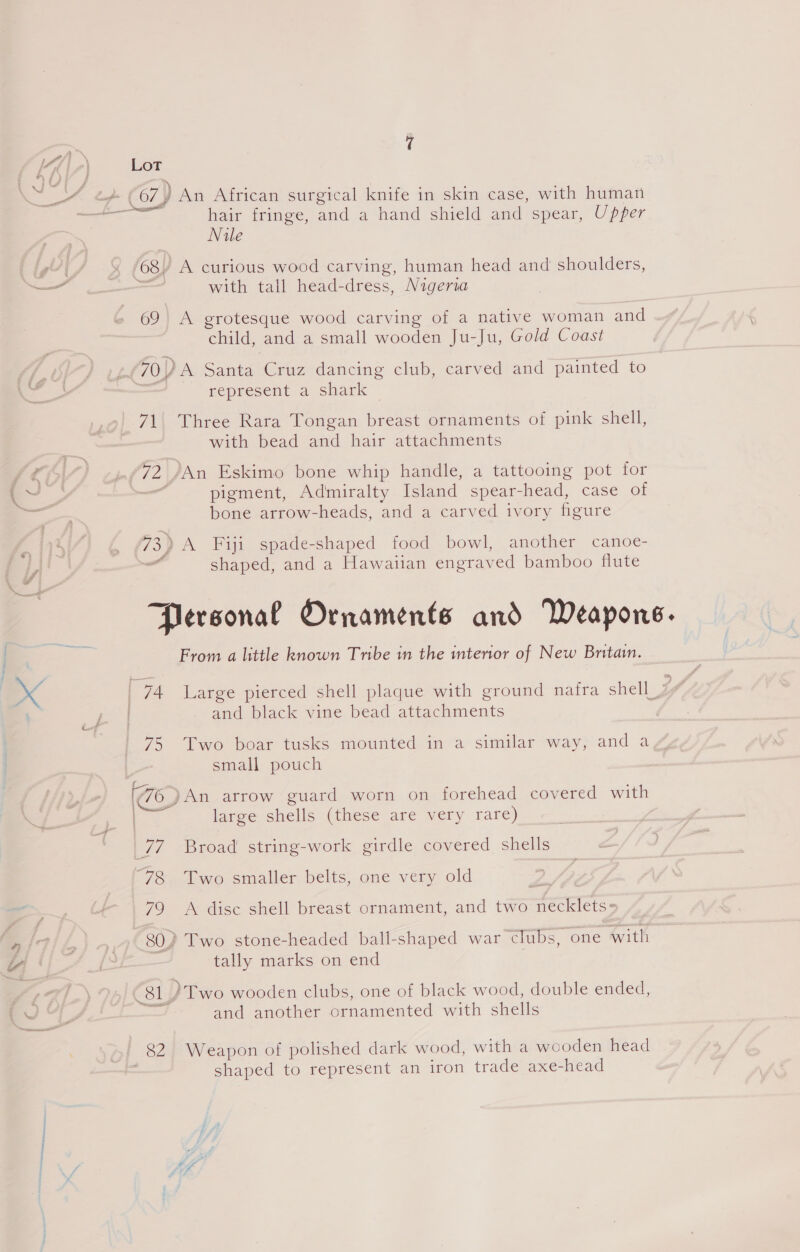 7
Lot
67 An African surgical knife in skin case, with human
hair fringe, and a hand shield and spear, Upper
Nile
68 A curious wood carving, human head and shoulders,
with tall head-dress, Nigeria
69 A grotesque wood carving of a native woman and
child, and a small wooden Ju-Ju, Gold Coast
70 A Santa Cruz dancing club, carved and painted to
represent a shark
71 Three Rara Tongan breast ornaments of pink shell,
with bead and hair attachments
72 An Eskimo bone whip handle, a tattooing pot for
pigment, Admiralty Island spear-head, case of
bone arrow-heads, and a carved ivory figure
73 A Fiji spade-shaped food bowl, another canoe-
shaped, and a Hawaiian engraved bamboo flute
Personal Ornaments and Weapons.
From a little known Tribe in the interior of New Britain.
74 Large pierced shell plaque with ground nafra shell
and black vine bead attachments
75 Two boar tusks mounted in a similar way, and a
small pouch
76 An arrow guard worn on forehead covered with
large shells (these are very rare)
77 Broad string-work girdle covered shells
78 Two smaller belts, one very old
79 A disc shell breast ornament, and two necklets
80 Two stone-headed ball-shaped war clubs, one with
tally marks on end
81 Two wooden clubs, one of black wood, double ended,
and another ornamented with shells
82 Weapon of polished dark wood, with a wooden head
shaped to represent an iron trade axe-head